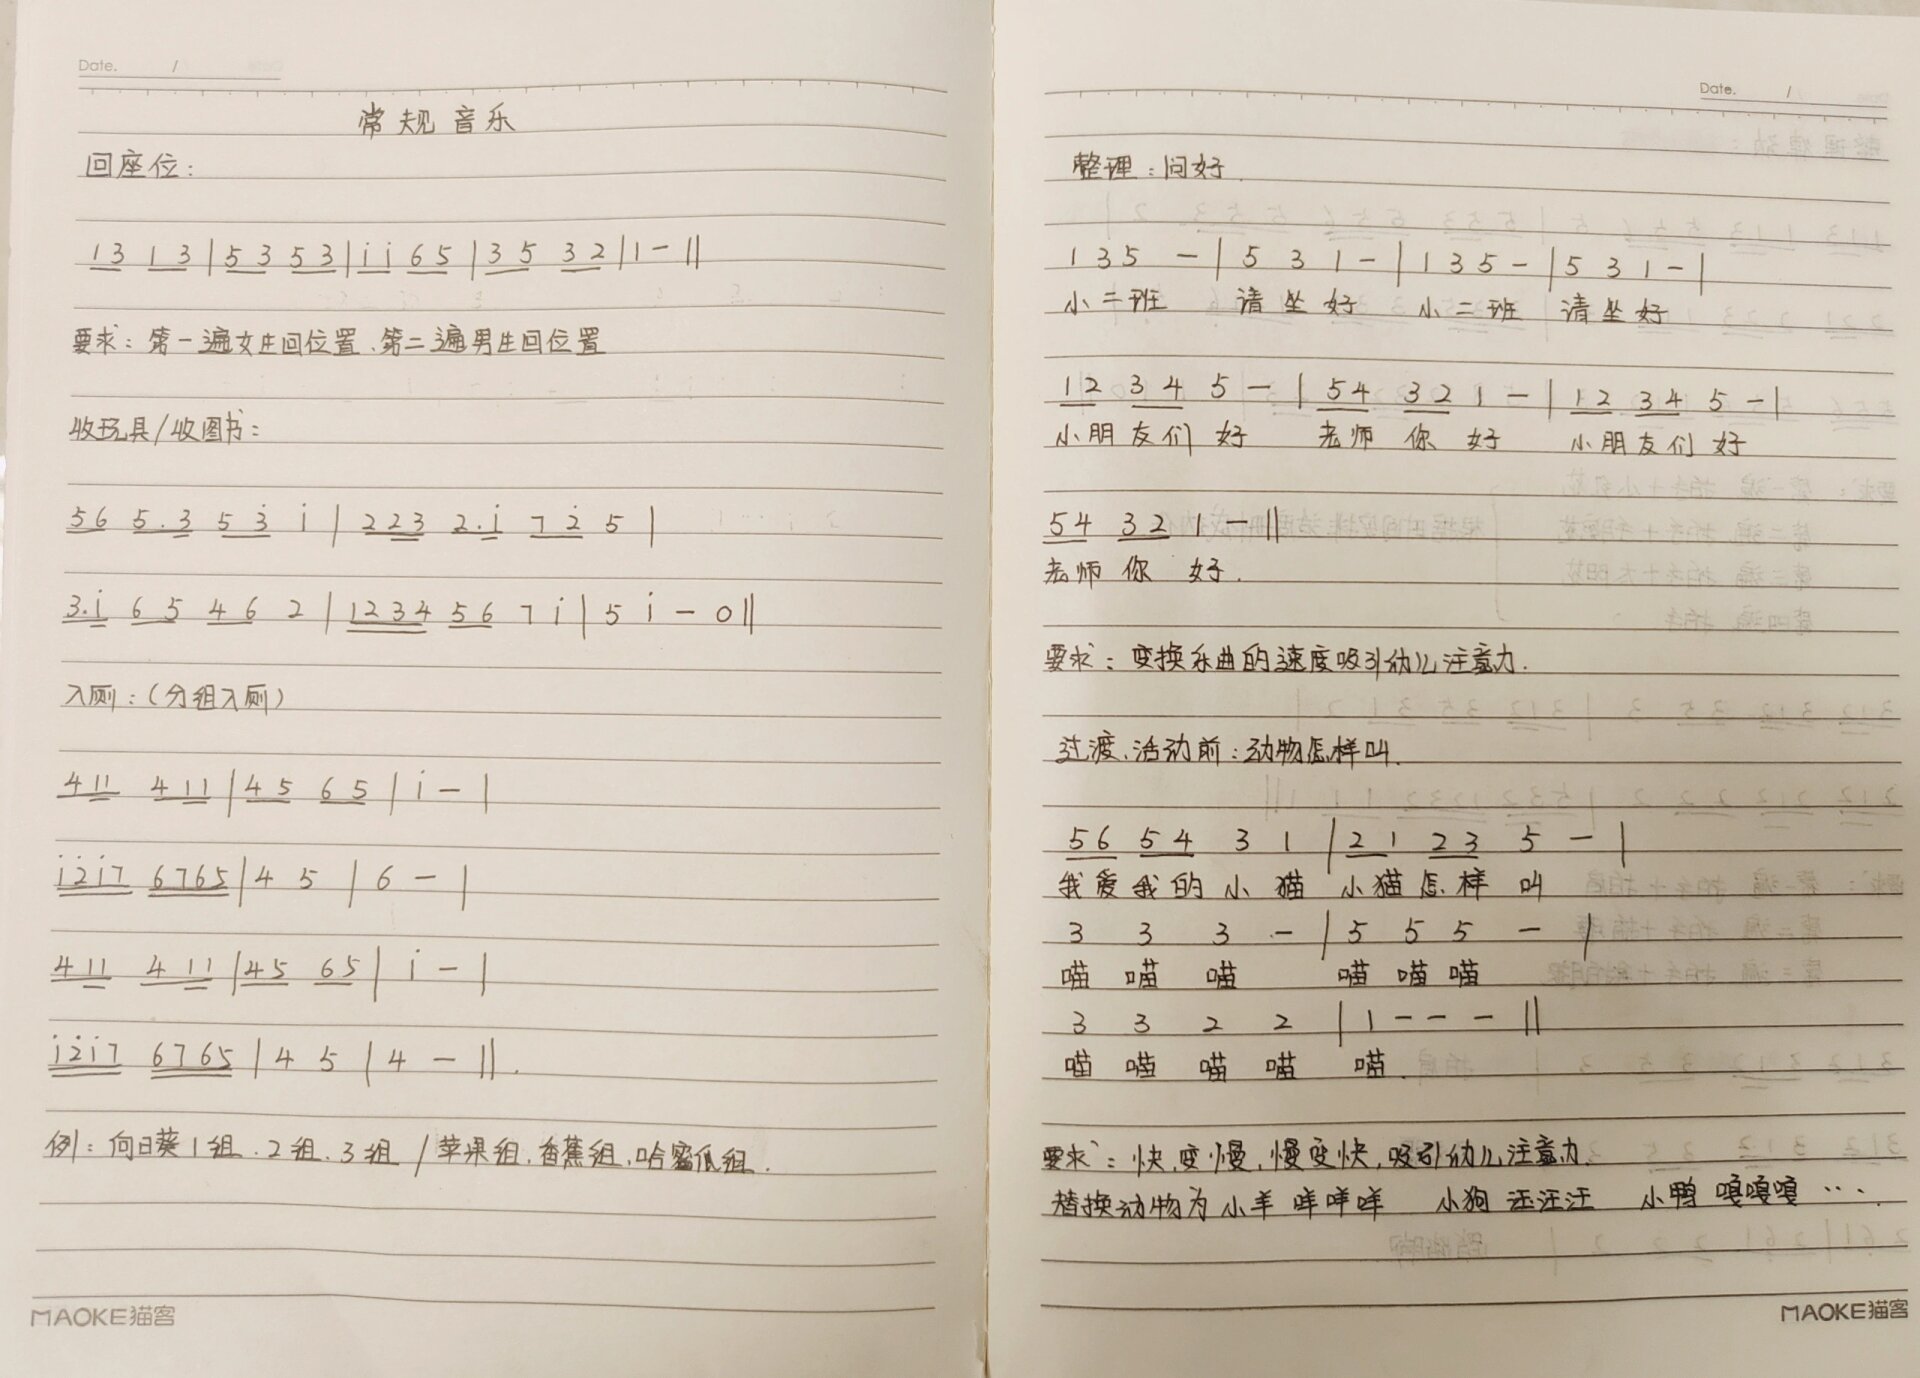 Date. /
常规音乐
回座位:
1 3 1 3 | 5 3 5 3 | i i 6 5 | 3 5 3 2 | 1 - ||
要求: 第一遍女生回位置、第二遍男生回位置
收玩具/收图书:
5 6 5 . 3 5 3̇ i | 2 2 3 2 . i 7 2̇ 5 |
3 . i 6 5 4 6 2 | 1 2 3 4 5 6 7 i | 5 i - 0 ||
入厕:(分组入厕)
4 1 1 4 1 1 | 4 5 6 5 | i - |
i 2̇ i 7 6 7 6 5 | 4 5 | 6 - |
4 1 1 4 1 1 | 4 5 6 5 | i - |
i 2̇ i 7 6 7 6 5 | 4 5 | 4 - || .
例: 向日葵1组、2组、3组 / 苹果组、香蕉组、哈密瓜组.
MAOKE猫客
Date. /
整理: 问好.
1 3 5 - | 5 3 1 - | 1 3 5 - | 5 3 1 - |
小二班 请坐好 小二班 请坐好
1 2 3 4 5 - | 5 4 3 2 1 - | 1 2 3 4 5 - |
小朋友们好 老师你好 小朋友们好
5 4 3 2 1 - ||
老师你好.
要求: 变换乐曲的速度吸引幼儿注意力.
过渡、活动前: 动物怎样叫.
5 6 5 4 3 1 | 2 1 2 3 5 - |
我爱我的小猫 小猫怎样叫
3 3 3 - | 5 5 5 - |
喵喵喵 喵喵喵
3 3 2 2 | 1 - - - ||
喵喵喵喵 喵.
要求: 快变慢, 慢变快, 吸引幼儿注意力.
替换动物为小羊 咩咩咩 小狗 汪汪汪 小鸭 嘎嘎嘎 ….
MAOKE猫客